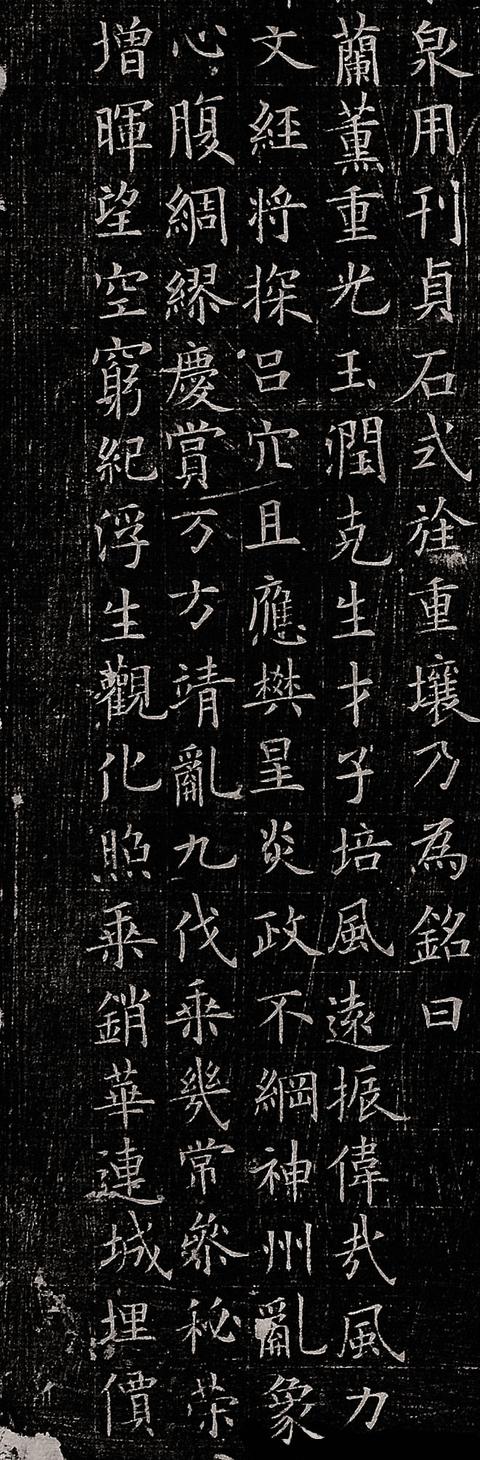 泉用刊貞石式旌重壤乃為銘曰
蘭薰重光玉潤克生才子培風遠振偉哉風力
文經将探呂穴且應樊星炎政不綱神州亂象
心腹綢繆慶賞万方靖亂九伐乘幾常參秘榮
增暉望空窮紀浮生觀化照乘銷華連城埋價